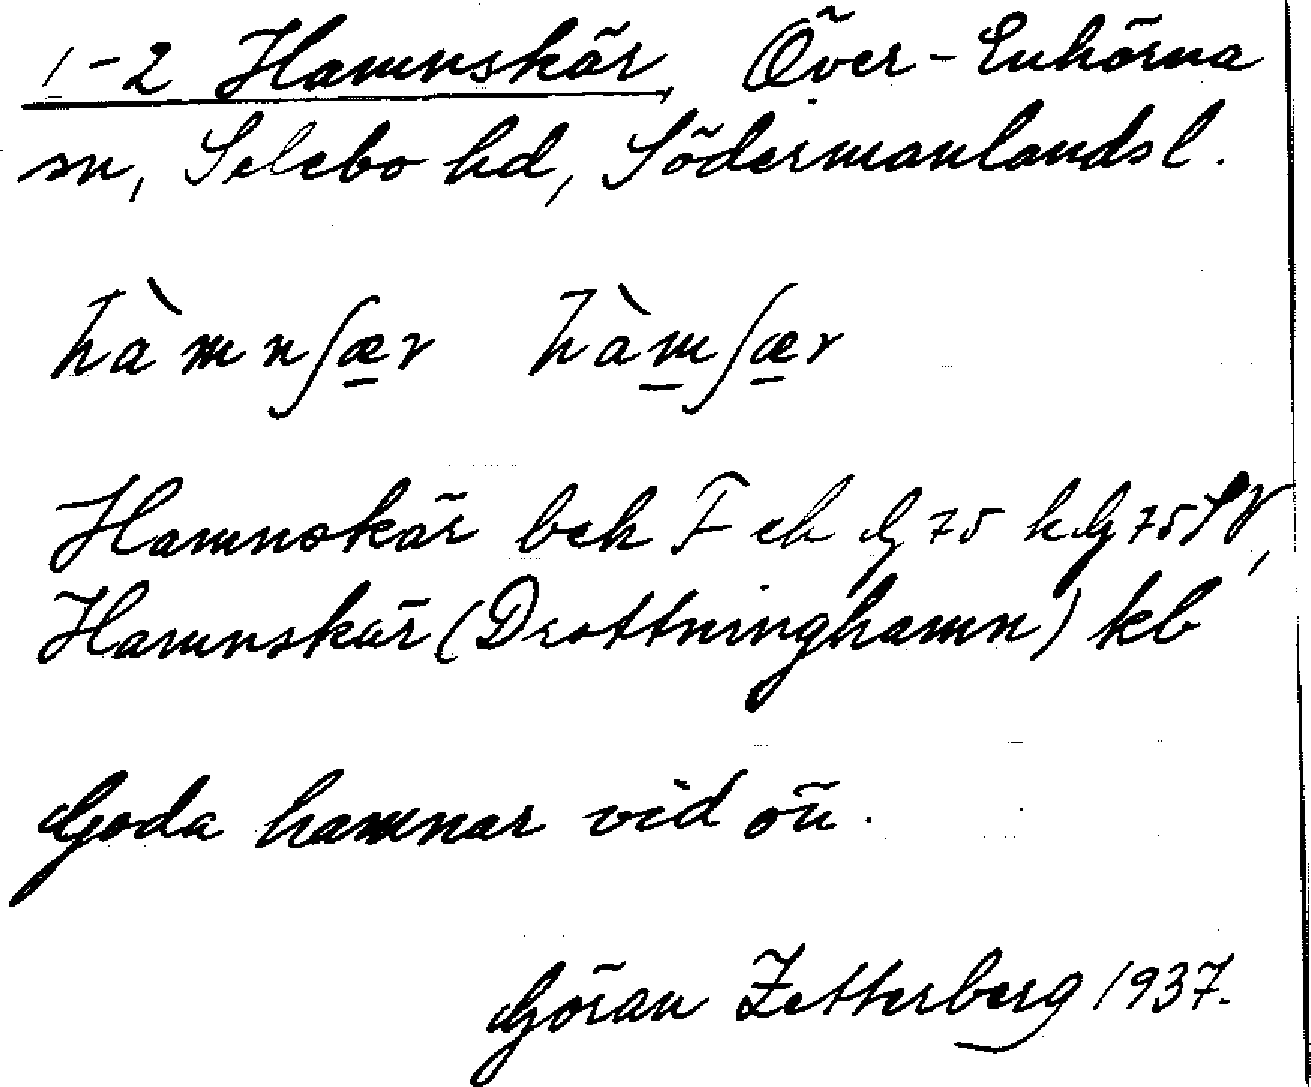 1-2 Hamnskär, Över-Enhörna
sn, Selebo hd, Södermanlands l.
hàmnʃær hàmʃær
Hamnskär bek F ek G 75 k Gj 75 SV,
Hamnskär (Drottninghamn) kb
Goda hamnar vid ön.
Göran Zetterberg 1937.